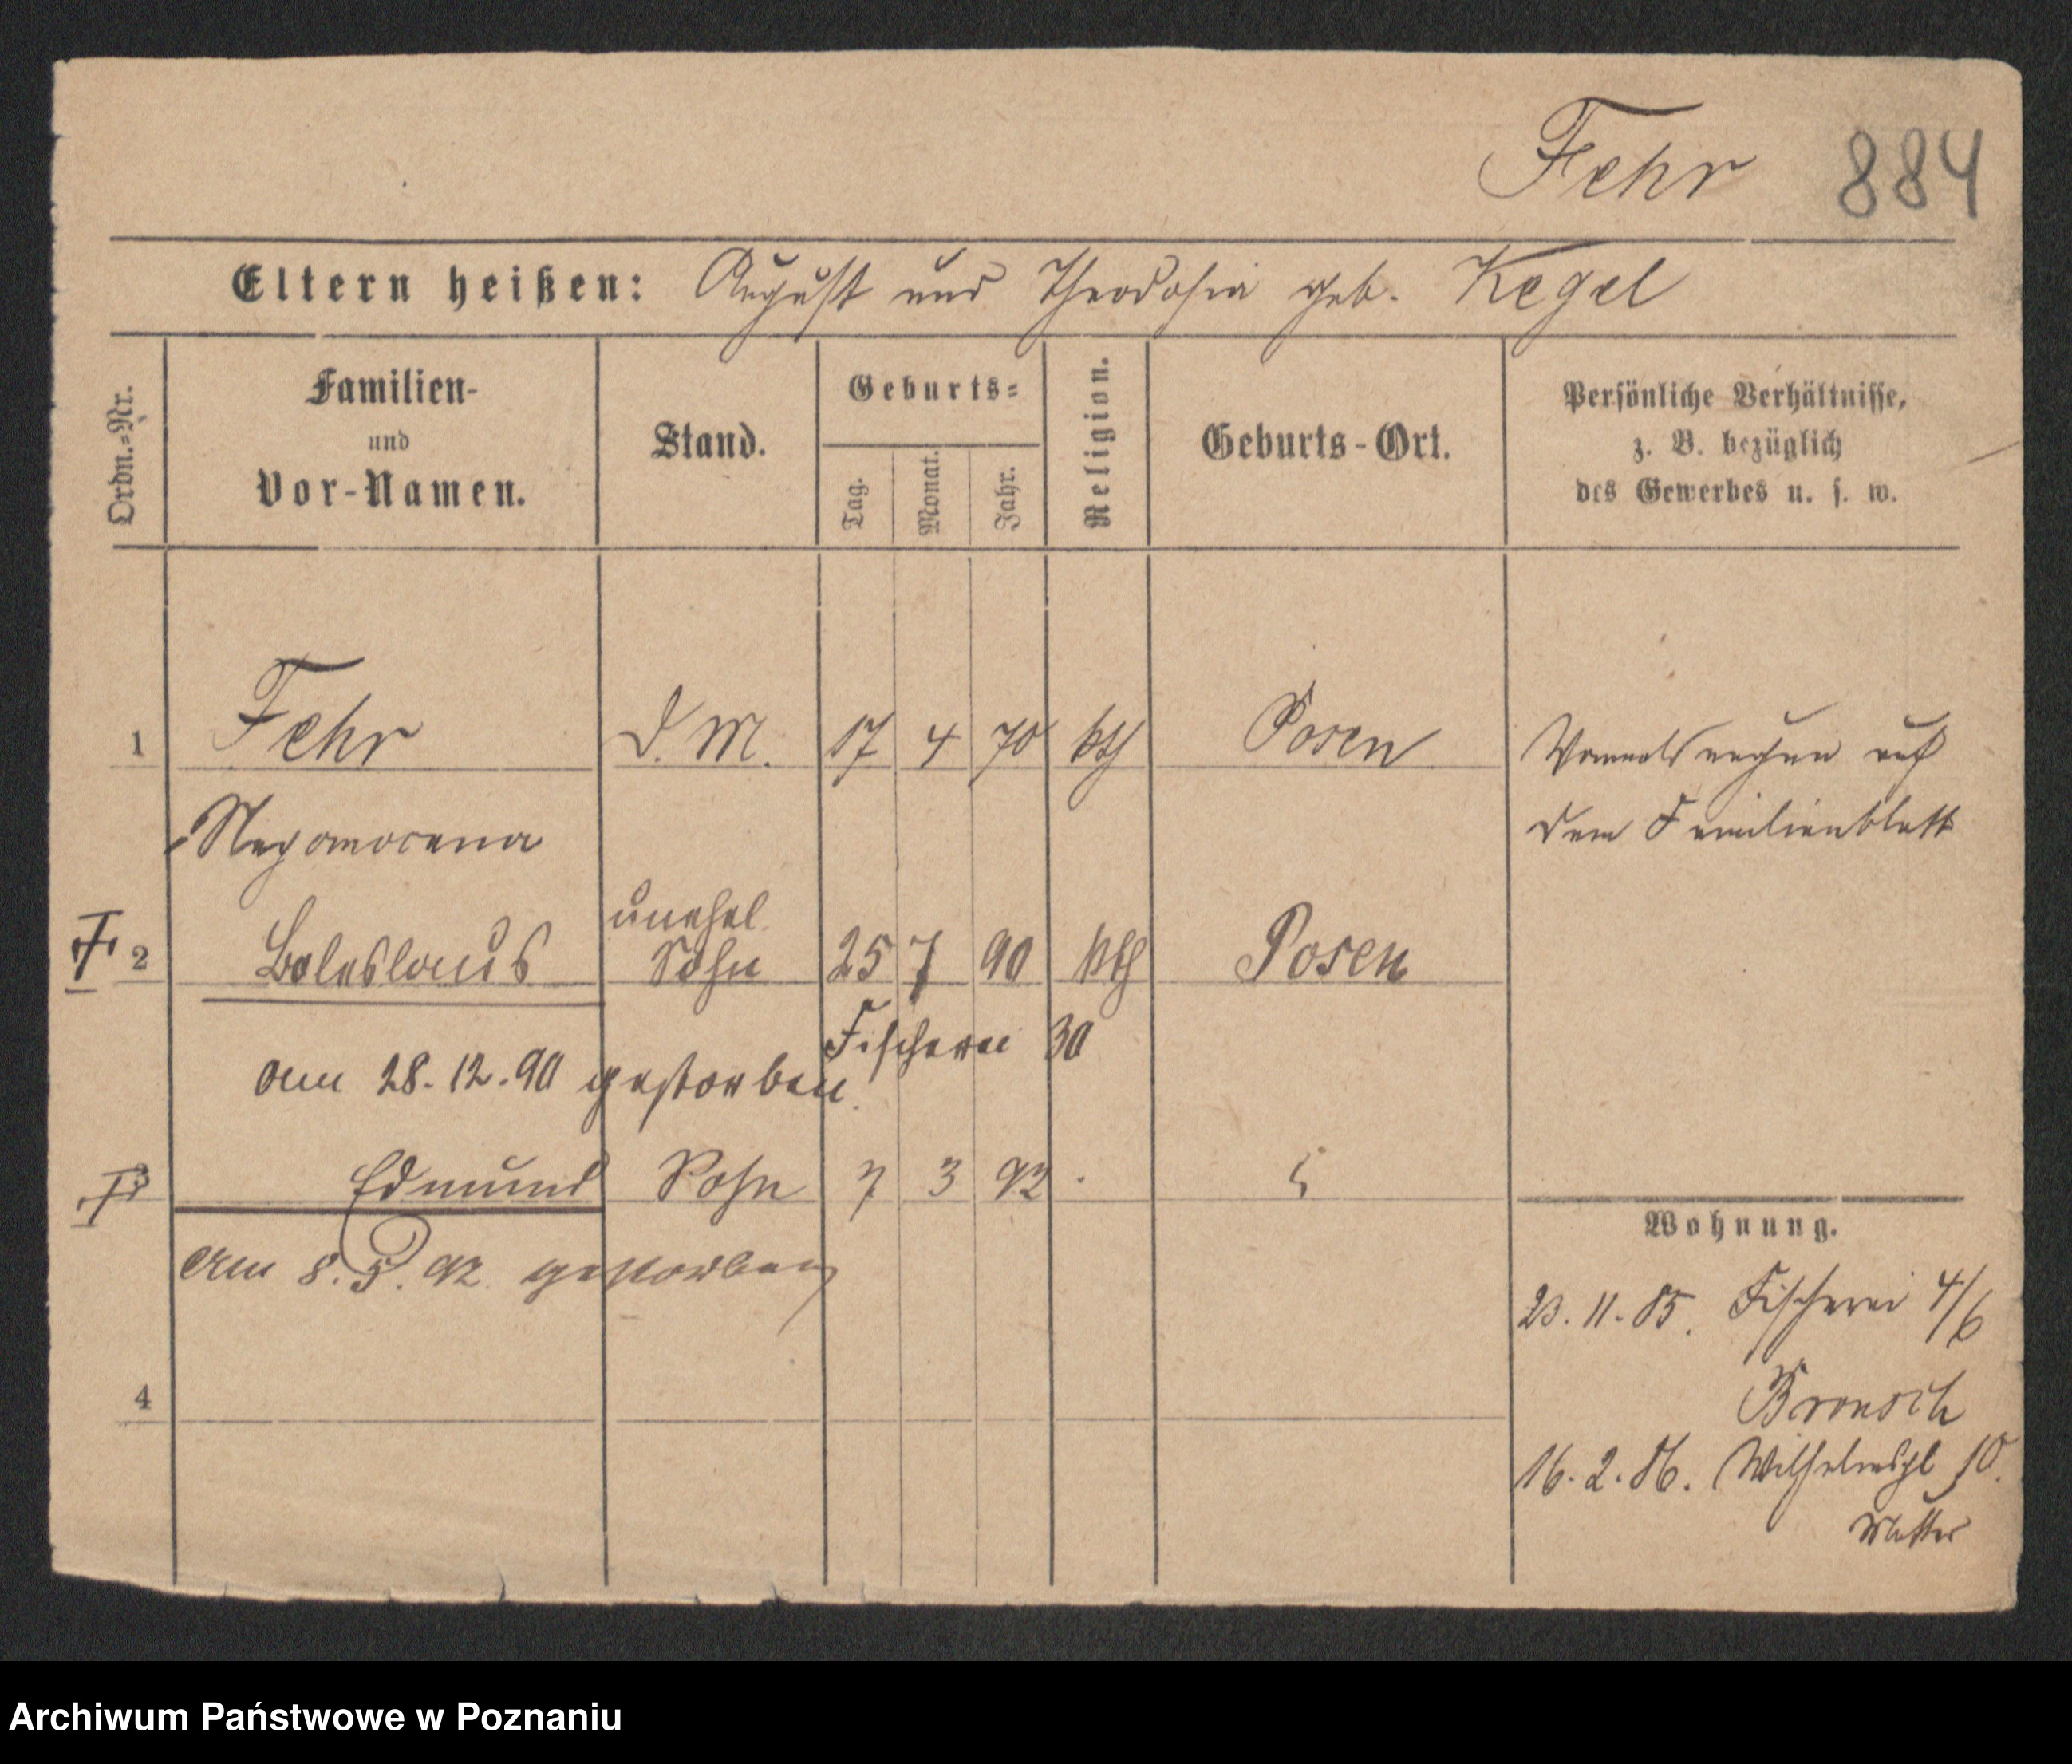 Fehr 884
Eltern heißen: August und Theodosia geb. Kegel
Ordn.=Nr.
Familien-
und
Vor-Namen.
Stand.
Geburts=
Tag.
Monat.
Jahr.
Religion.
Geburts-Ort.
Persönliche Verhältnisse,
z. B. bezüglich
des Gewerbes u. s. w.
1 Fehr D. M. 17 4 70 kth Posen
auf
dem Familienblatt
unehel.
2 Boleslaus Sohn 25 7 90 kth Posen
Fischerei 30
am 28.12.90 gestorben.
3 Edmund Sohn 7 3 92
am 8.5.92. gestorben
4
Wohnung.
23.11.85. Fischerei 4/6
16.2.86. Wilhelmspl 10.
Mutter
Archiwum Państwowe w Poznaniu